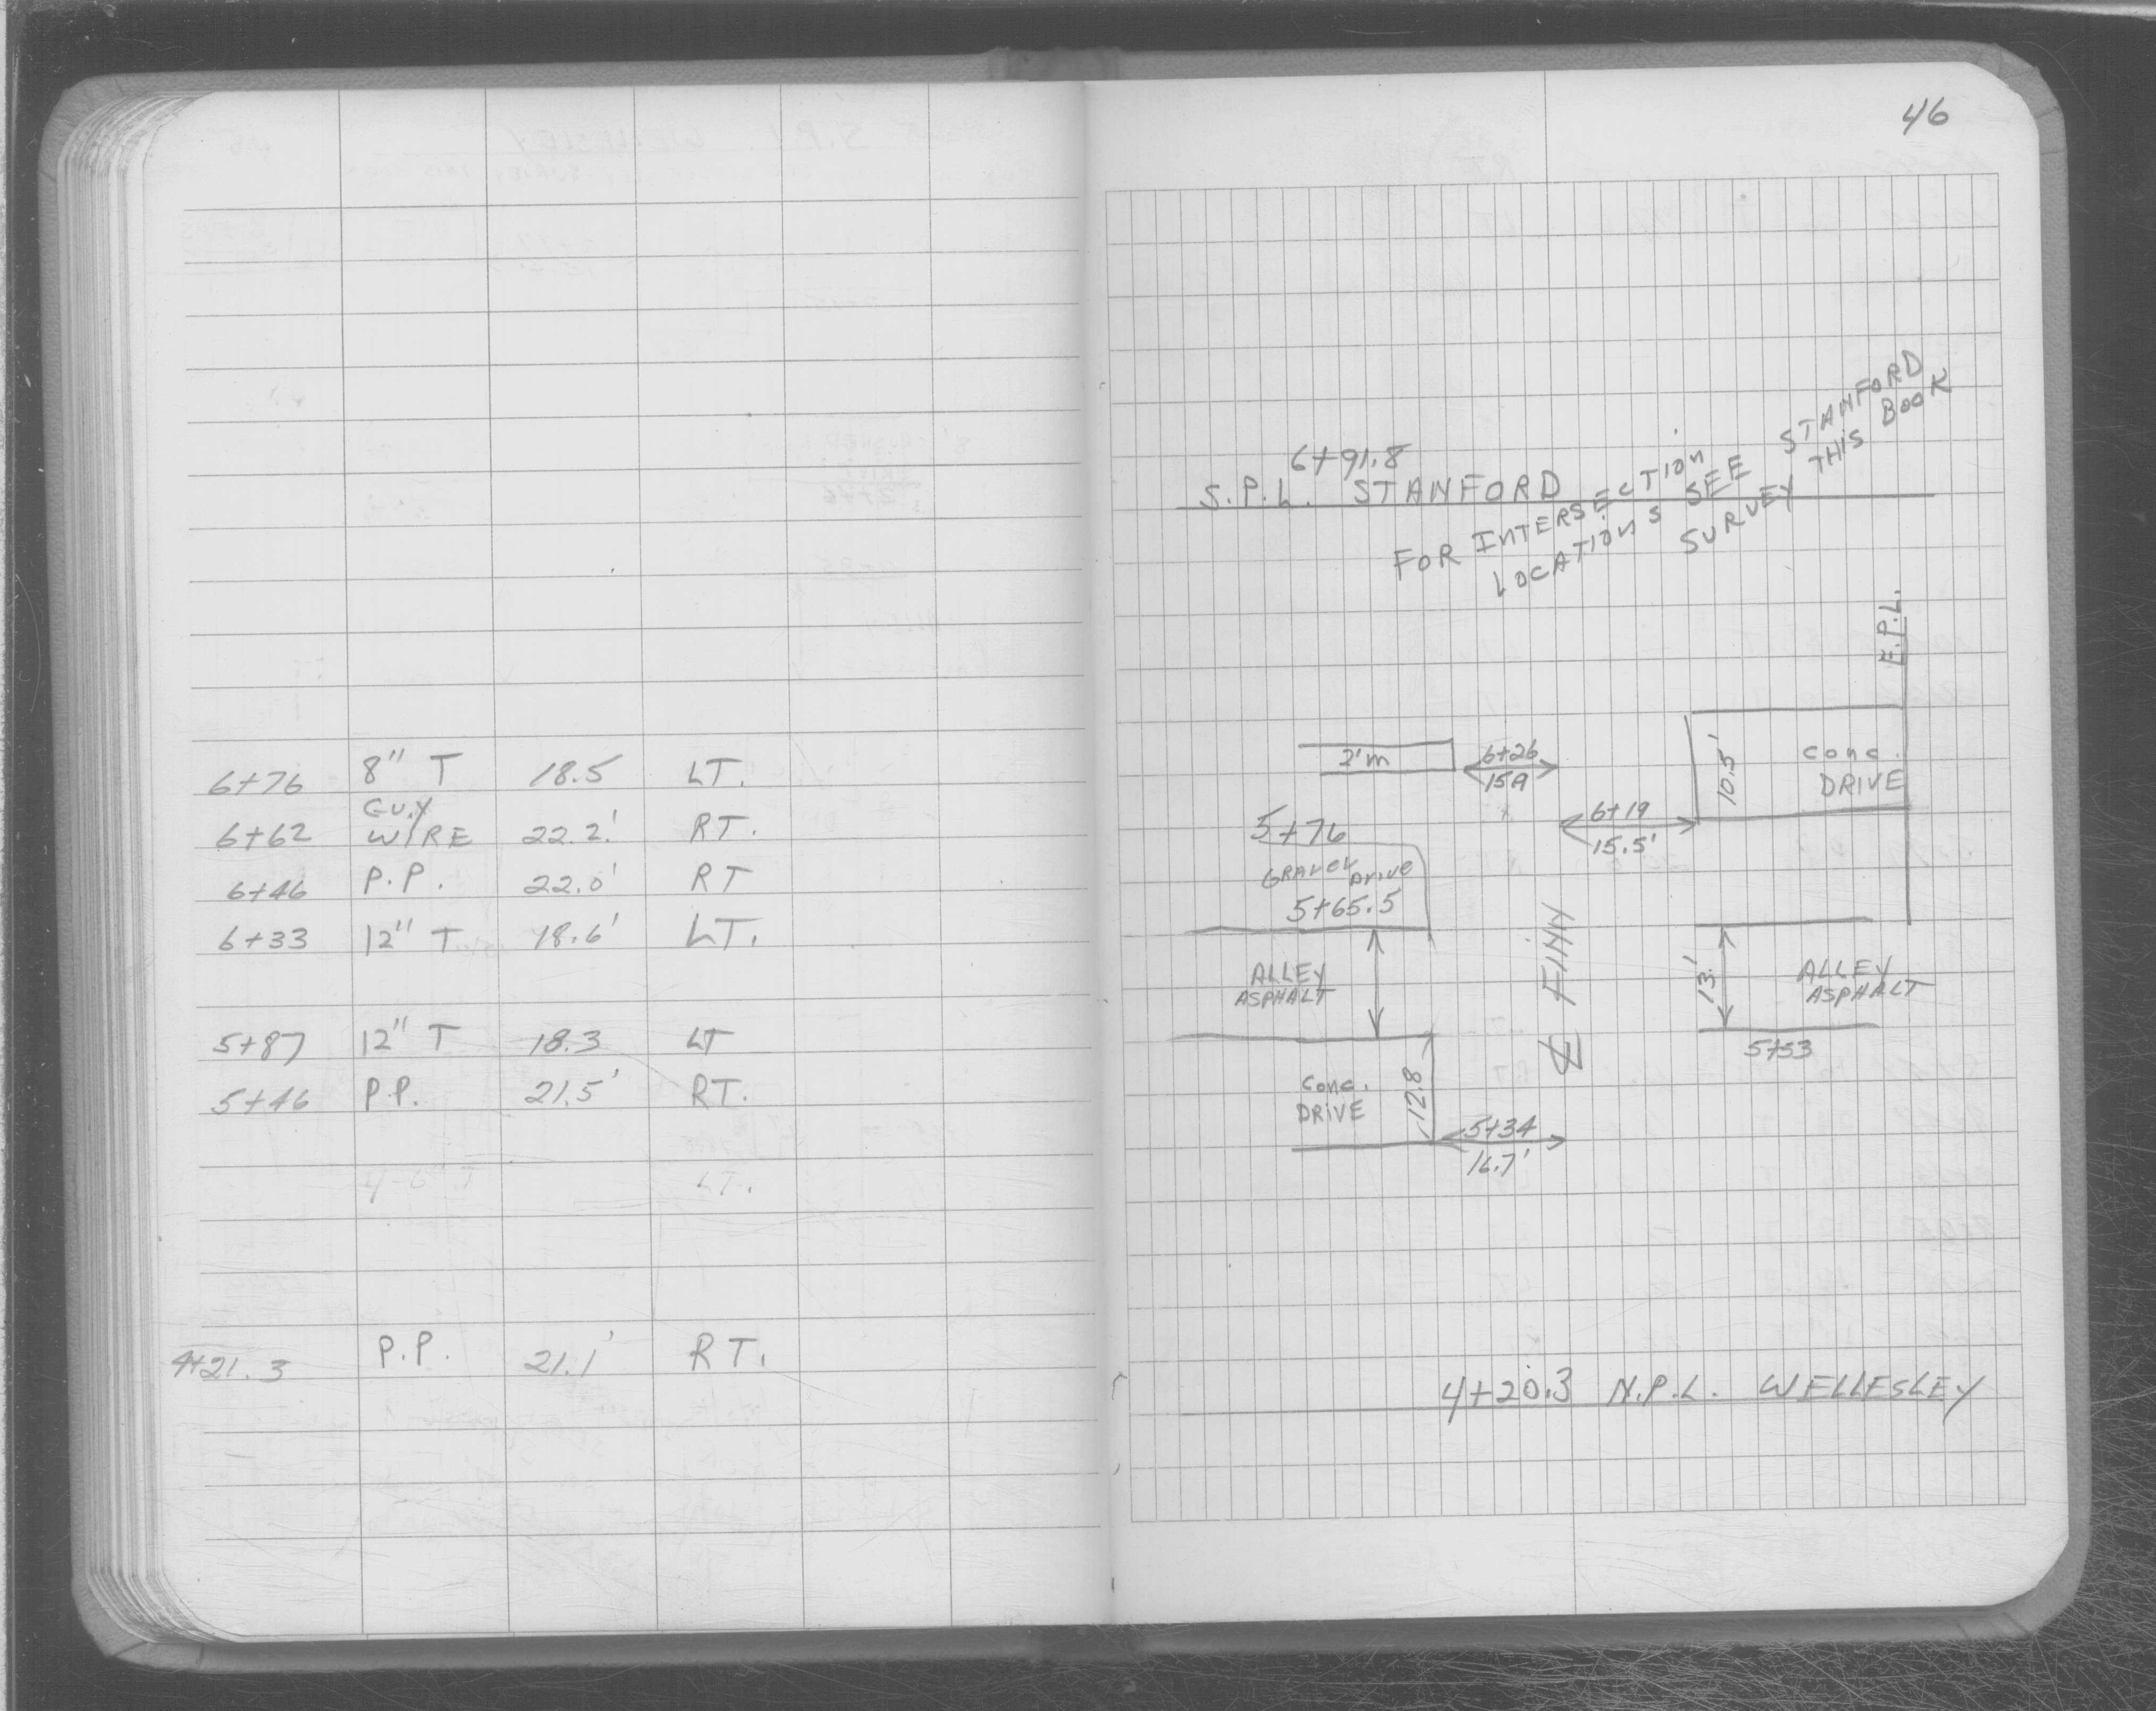 6+76 8" T 18.5 LT.
GUY
6+62 WIRE 22.2' RT.
6+46 P.P. 22.0' RT
6+33 12" T 18.6' LT.
5+87 12" T 18.3 LT
5+46 P.P. 21.5' RT.
LT.
4+21.3 P.P. 21.1' RT.
46
6+91.8
S.P.L. STANFORD
FOR INTERSECTION
LOCATIONS SEE STANFORD
SURVEY THIS BOOK
E.P.L.
2'm
6+26
10.5'
CONC.
DRIVE
6+19
15.5'
5+76
GRAVEL DRIVE
5+65.5
ALLEY
ASPHALT
℄ FINN
13.'
ALLEY
ASPHALT
5+53
CONC.
DRIVE
12.8
5+34
16.7'
4+20.3 N.P.L. WELLESLEY